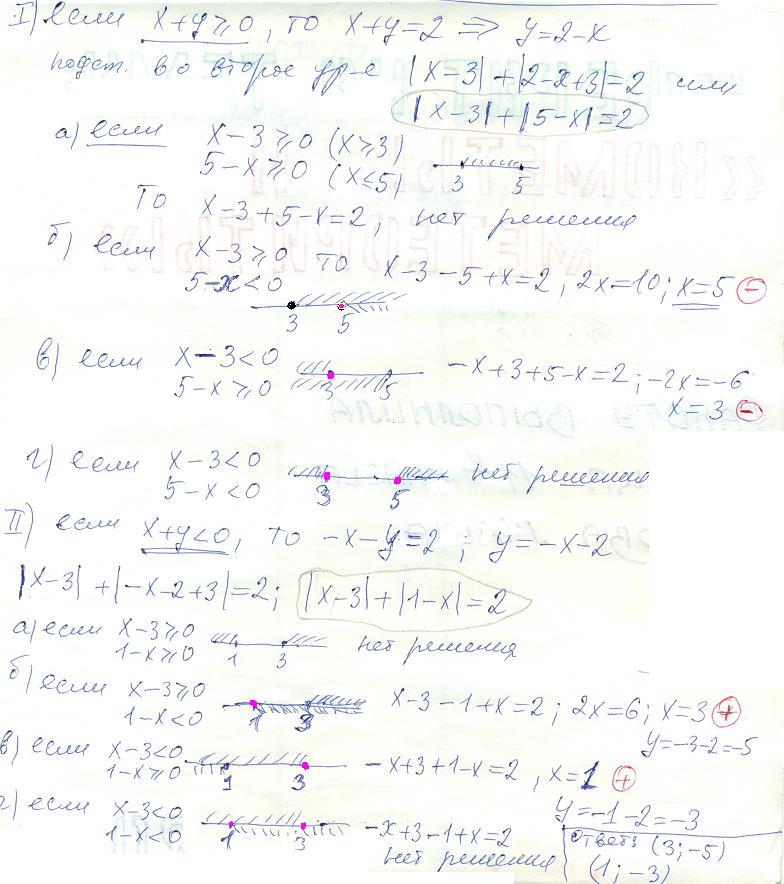 I) если x+y⩾0, то x+y=2 ⇒ y=2-x
подст. во второе ур-е |x-3|+|2-x+3|=2 или
|x-3|+|5-x|=2
а) если x-3⩾0 (x⩾3)
5-x⩾0 (x⩽5) 3 5
то x-3+5-x=2, нет решения
б) если x-3⩾0 то x-3-5+x=2, 2x=10; x=5 ⊖
5-x<0
3 5
в) если x-3<0 -x+3+5-x=2; -2x=-6
5-x⩾0 3 5 x=3 ⊖
г) если x-3<0 нет решения
5-x<0 3 5
II) если x+y<0, то -x-y=2; y=-x-2
|x-3|+|-x-2+3|=2; |x-3|+|1-x|=2
а) если x-3⩾0 нет решения
1-x⩾0 1 3
б) если x-3⩾0 x-3-1+x=2; 2x=6; x=3 ⊕
1-x<0 1 3 y=-3-2=-5
в) если x-3<0 -x+3+1-x=2, x=1 ⊕
1-x⩾0 1 3
г) если x-3<0 y=-1-2=-3
1-x<0 1 3 -x+3-1+x=2
нет решения
ответ: (3;-5)
(1;-3)